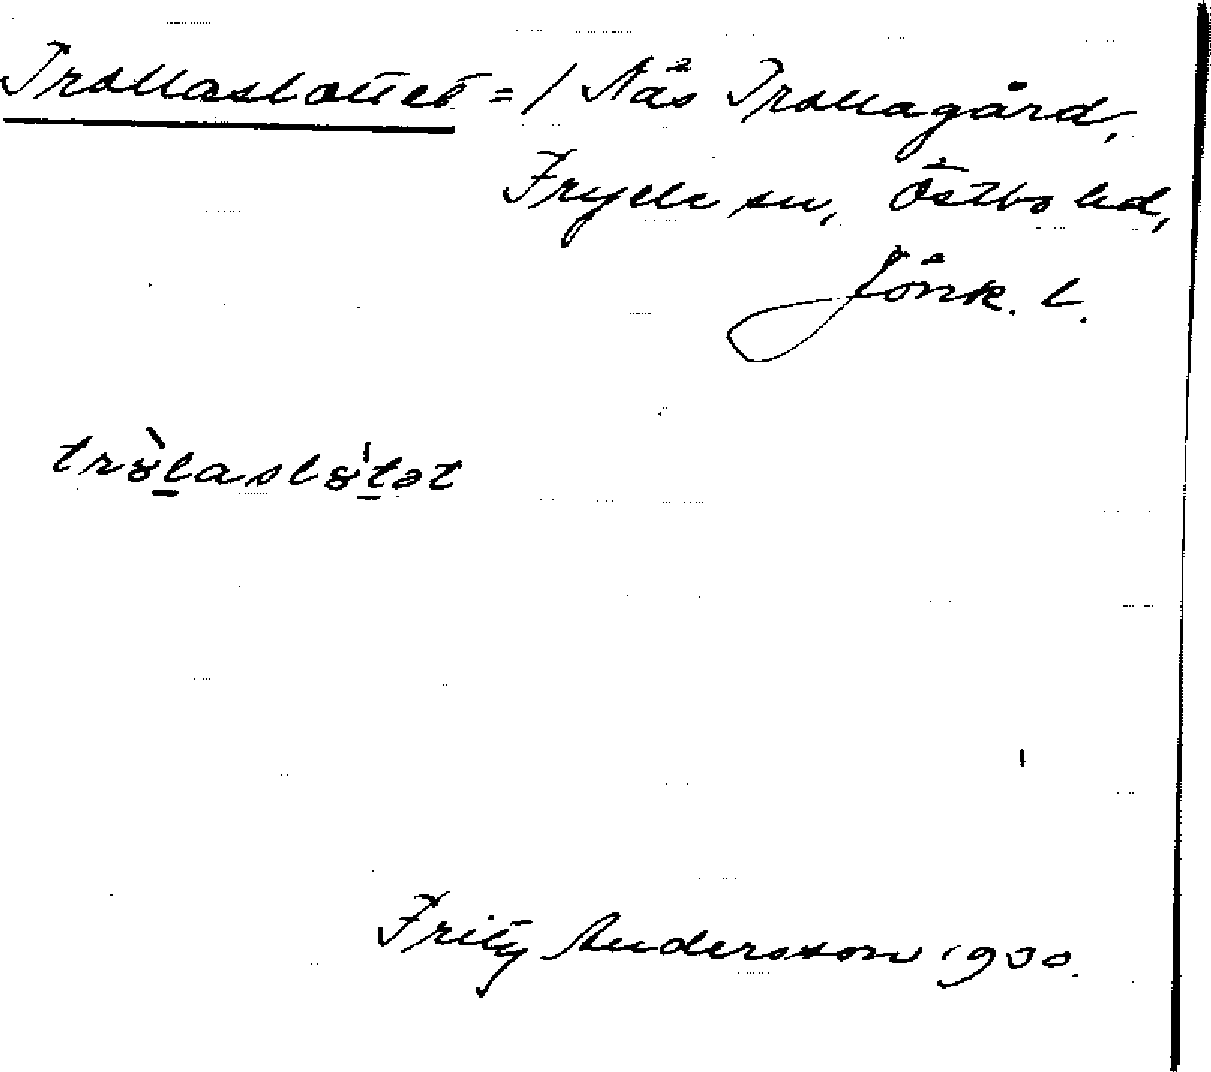 Trollaslottet = / Näs Trollagård,
Fryele sn, Östbo hd,
Jönk. L.
tròlaslo̍tət
Fritz Andersson 1900.